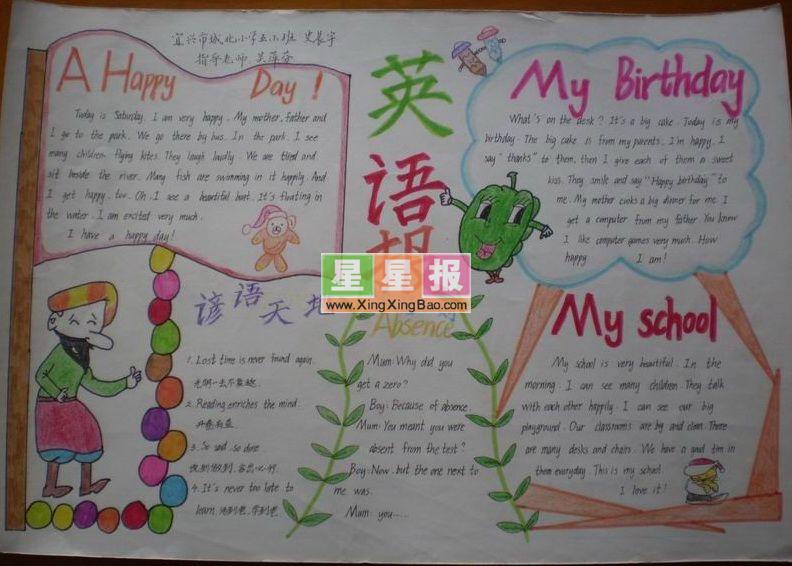 宜兴市城北小学五(1)班 史长宇
指导老师 吴萍芬
A Happy Day!
Today is Saturday. I am very happy. My mother, father and
I go to the park. We go there by bus. In the park. I see
many children flying kites. They laugh loudly. We are tired and
sit beside the river. Many fish are swimming in it happily. And
I get happy, too. Oh, I see a beautiful boat. It's floating in
the water. I am excited very much.
I have a happy day!
英
语
星星报
www.XingXingBao.com
My Birthday
What's on the desk? It's a big cake. Today is my
birthday. The big cake is from my parents. I'm happy. I
say "thanks" to them, then I give each of them a sweet
kiss. They smile and say "Happy birthday" to
me. My mother cooks a big dinner for me. I
get a computer from my father. You know
I like computer games very much. How
happy I am!
谚语天地
1. Lost time is never found again.
光阴一去不复返.
2. Reading enriches the mind.
开卷有益.
3. So said, so done.
说到做到,言出必行.
4. It's never too late to
learn. 活到老,学到老
Absence
Mum: Why did you
get a zero?
Boy: Because of absence.
Mum: You meant you were
absent from the test?
Boy: Now, but the one next to
me was.
Mum: you......
My school
My school is very beautiful. In the
morning. I can see many children. They talk
with each other happily. I can see our big
playground. Our classrooms are big and clean. There
are many desks and chairs. We have a good tim in
them everyday. This is my school.
I love it!